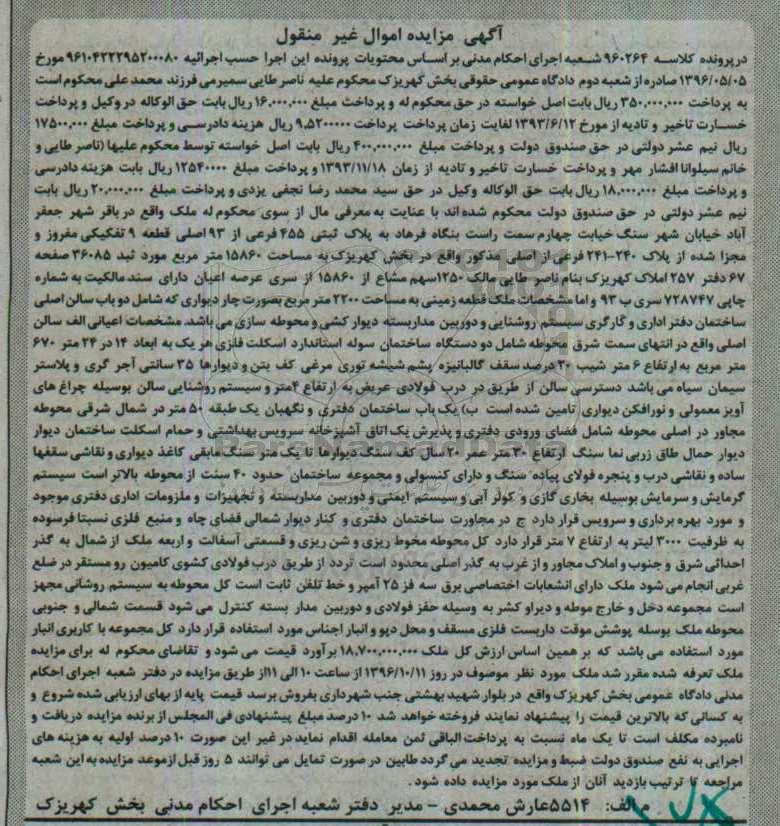 آگهی مزایده اموال غیر منقول
درپرونده کلاسه ۹۶۰۲۶۴ شعبه اجرای احکام مدنی بر اساس محتویات پرونده این اجرا حسب اجرائیه ۹۶۱۰۴۲۲۲۹۵۲۰۰۰۸۰ مورخ
۱۳۹۶/۰۵/۰۵ صادره از شعبه دوم دادگاه عمومی حقوقی بخش کهریزک محکوم علیه ناصر طایی سمیرمی فرزند محمد علی محکوم است
به پرداخت ۳۵۰,۰۰۰,۰۰۰ ریال بابت اصل خواسته در حق محکوم له و پرداخت مبلغ ۱۶,۰۰۰,۰۰۰ ریال بابت حق الوکاله در وکیل و پرداخت
خسارت تاخیر و تادیه از مورخ ۱۳۹۳/۶/۱۲ لغایت زمان پرداخت پرداخت ۹,۵۲۰۰۰۰۰ ریال هزینه دادرسی و پرداخت مبلغ ۱۷۵۰۰,۰۰۰
ریال نیم عشر دولتی در حق صندوق دولت و پرداخت مبلغ ۴۰۰,۰۰۰,۰۰۰ ریال بابت اصل خواسته توسط محکوم علیها (ناصر طایی و
خانم سیلوانا افشار مهر و پرداخت خسارت تاخیر و تادیه از زمان ۱۳۹۳/۱۱/۱۸ و پرداخت مبلغ ۱۲۵۴۰۰۰۰ ریال بابت هزینه دادرسی
و پرداخت مبلغ ۱۸,۰۰۰,۰۰۰ ریال بابت حق الوکاله وکیل در حق سید محمد رضا نجفی یزدی و پرداخت مبلغ ۲۰,۰۰۰,۰۰۰ ریال بابت
نیم عشر دولتی در حق صندوق دولت محکوم شده اند با عنایت به معرفی مال از سوی محکوم له ملک واقع در باقر شهر جعفر
آباد خیابان شهر سنگ خیابت چهارم سمت راست بنگاه فرهاد به پلاک ثبتی ۴۵۵ فرعی از ۹۳ اصلی قطعه ۹ تفکیکی مفروز و
مجزا شده از پلاک ۲۴۰-۲۴۱ فرعی از اصلی مذکور واقع در بخش کهریزک به مساحت ۱۵۸۶۰ متر مربع مورد ثبد ۳۶۰۸۵ صفحه
۶۷ دفتر ۲۵۷ املاک کهریزک بنام ناصر طایی مالک ۱۲۵۰سهم مشاع از ۱۵۸۶۰ از سری عرصه اعیان دارای سند مالکیت به شماره
چاپی ۷۲۸۷۴۷ سری ب ۹۳ و اما مشخصات ملک قطعه زمینی به مساحت ۲۲۰۰ متر مربع بصورت چار دیواری که شامل دو باب سالن اصلی
ساختمان دفتر اداری و گارگری سیستم روشنایی و دوربین مداربسته دیوار کشی و محوطه سازی می باشد. مشخصات اعیانی الف سالن
اصلی واقع در انتهای سمت شرق محوطه شامل دو دستگاه ساختمان سوله استاندارد اسکلت فلزی هر یک به ابعاد ۱۴ در ۲۴ متر ۶۷۰
متر مربع به ارتفاع ۶ متر شیب ۲۰ درصد سقف گالبانیزه پشم شیشه توری مرغی کف بتن و دیوارها ۳۵ سانتی آجر گری و پلاستر
سیمان سیاه می باشد دسترسی سالن از طریق در درب فولادی عریض به ارتفاع ۴متر و سیستم روشنایی سالن بوسیله چراغ های
آویز معمولی و نورافکن دیواری تامین شده است ب) یک باب ساختمان دفتری و نگهبان یک طبقه ۵۰ متر در شمال شرقی محوطه
مجاور در اصلی محوطه شامل فضای ورودی دفتری و پذیرش یک اتاق آشپزخانه سرویس بهداشتی و حمام اسکلت ساختمان دیوار
دیوار حمال طاق زربی نما سنگ ارتفاع ۳۰ متر عمر ۲۰ سال کف سنگ دیوارها تا یک متر سنگ مابقی کاغذ دیواری و نقاشی سقفها
ساده و نقاشی درب و پنجره فولای پیاده سنگ و دارای کنسولی و مجموعه ساختمان حدود ۴۰ سنت از محوطه بالاتر است سیستم
گرمایش و سرمایش بوسیله بخاری گازی و کولر آبی و سیستم ایمنی و دوربین مداربسته و تجهیزات و ملزومات اداری دفتری موجود
و مورد بهره برداری و سرویس قرار دارد ج در مجاورت ساختمان دفتری و کنار دیوار شمالی فضای چاه و منبع فلزی نسبتا فرسوده
به ظرفیت ۳۰۰۰ لیتر به ارتفاع ۷ متر قرار دارد کل محوطه مخوط ریزی و شن ریزی و قسمتی آسفالت و اربعه ملک از شمال به گذر
احداثی شرق و جنوب و املاک مجاور و از غرب به گذر اصلی محدود است تردد از طریق درب فولادی کشوی کامیون رو مستقر در ضلع
غربی انجام می شود ملک دارای انشعابات اختصاصی برق سه فز ۲۵ آمپر و خط تلفن ثابت است کل محوطه به سیستم روشنائی مجهز
است مجموعه دخل و خارج موطه و دیراو کشر به وسیله حفز فولادی و دوربین مدار بسته کنترل می شود قسمت شمالی و جنوبی
محوطه ملک بوسله پوشش موقت داربست فلزی مسقف و محل دپو و انبار اجناس مورد استفاده قرار دارد کل مجموعه با کاربری انبار
مورد استفاده می باشد که بر همین اساس ارزش کل ملک ۱۸,۷۰۰,۰۰۰,۰۰۰ برآورد قیمت می شود و تقاضای محکوم له برای مزایده
ملک تعرفه شده مقرر شد ملک مورد نظر موصوف در روز ۱۳۹۶/۱۰/۱۱ از ساعت ۱۰ الی ۱۱از طریق مزایده در دفتر شعبه اجرای احکام
مدنی دادگاه عمومی بخش کهریزک واقع در بلوار شهید بهشتی جنب شهرداری بفروش برسد قیمت پایه از بهای ارزیابی شده شروع و
به کسانی که بالاترین قیمت را پیشنهاد نمایند فروخته خواهد شد ۱۰ درصد مبلغ پیشنهادی فی المجلس از برنده مزایده دریافت و
نامبرده مکلف است تا یک ماه نسبت به پرداخت الباقی ثمن معامله اقدام نماید در غیر این صورت ۱۰ درصد اولیه به هزینه های
اجرایی به نفع صندوق دولت ضبط و مزایده تجدید می گردد طابین در صورت تمایل می توانند ۵ روز قبل ازموعد مزایده به این شعبه
مراجعه تا ترتیب بازدید آنان از ملک مورد مزایده داده شود.
م الف: ۵۵۱۴عارش محمدی - مدیر دفتر شعبه اجرای احکام مدنی بخش کهریزک